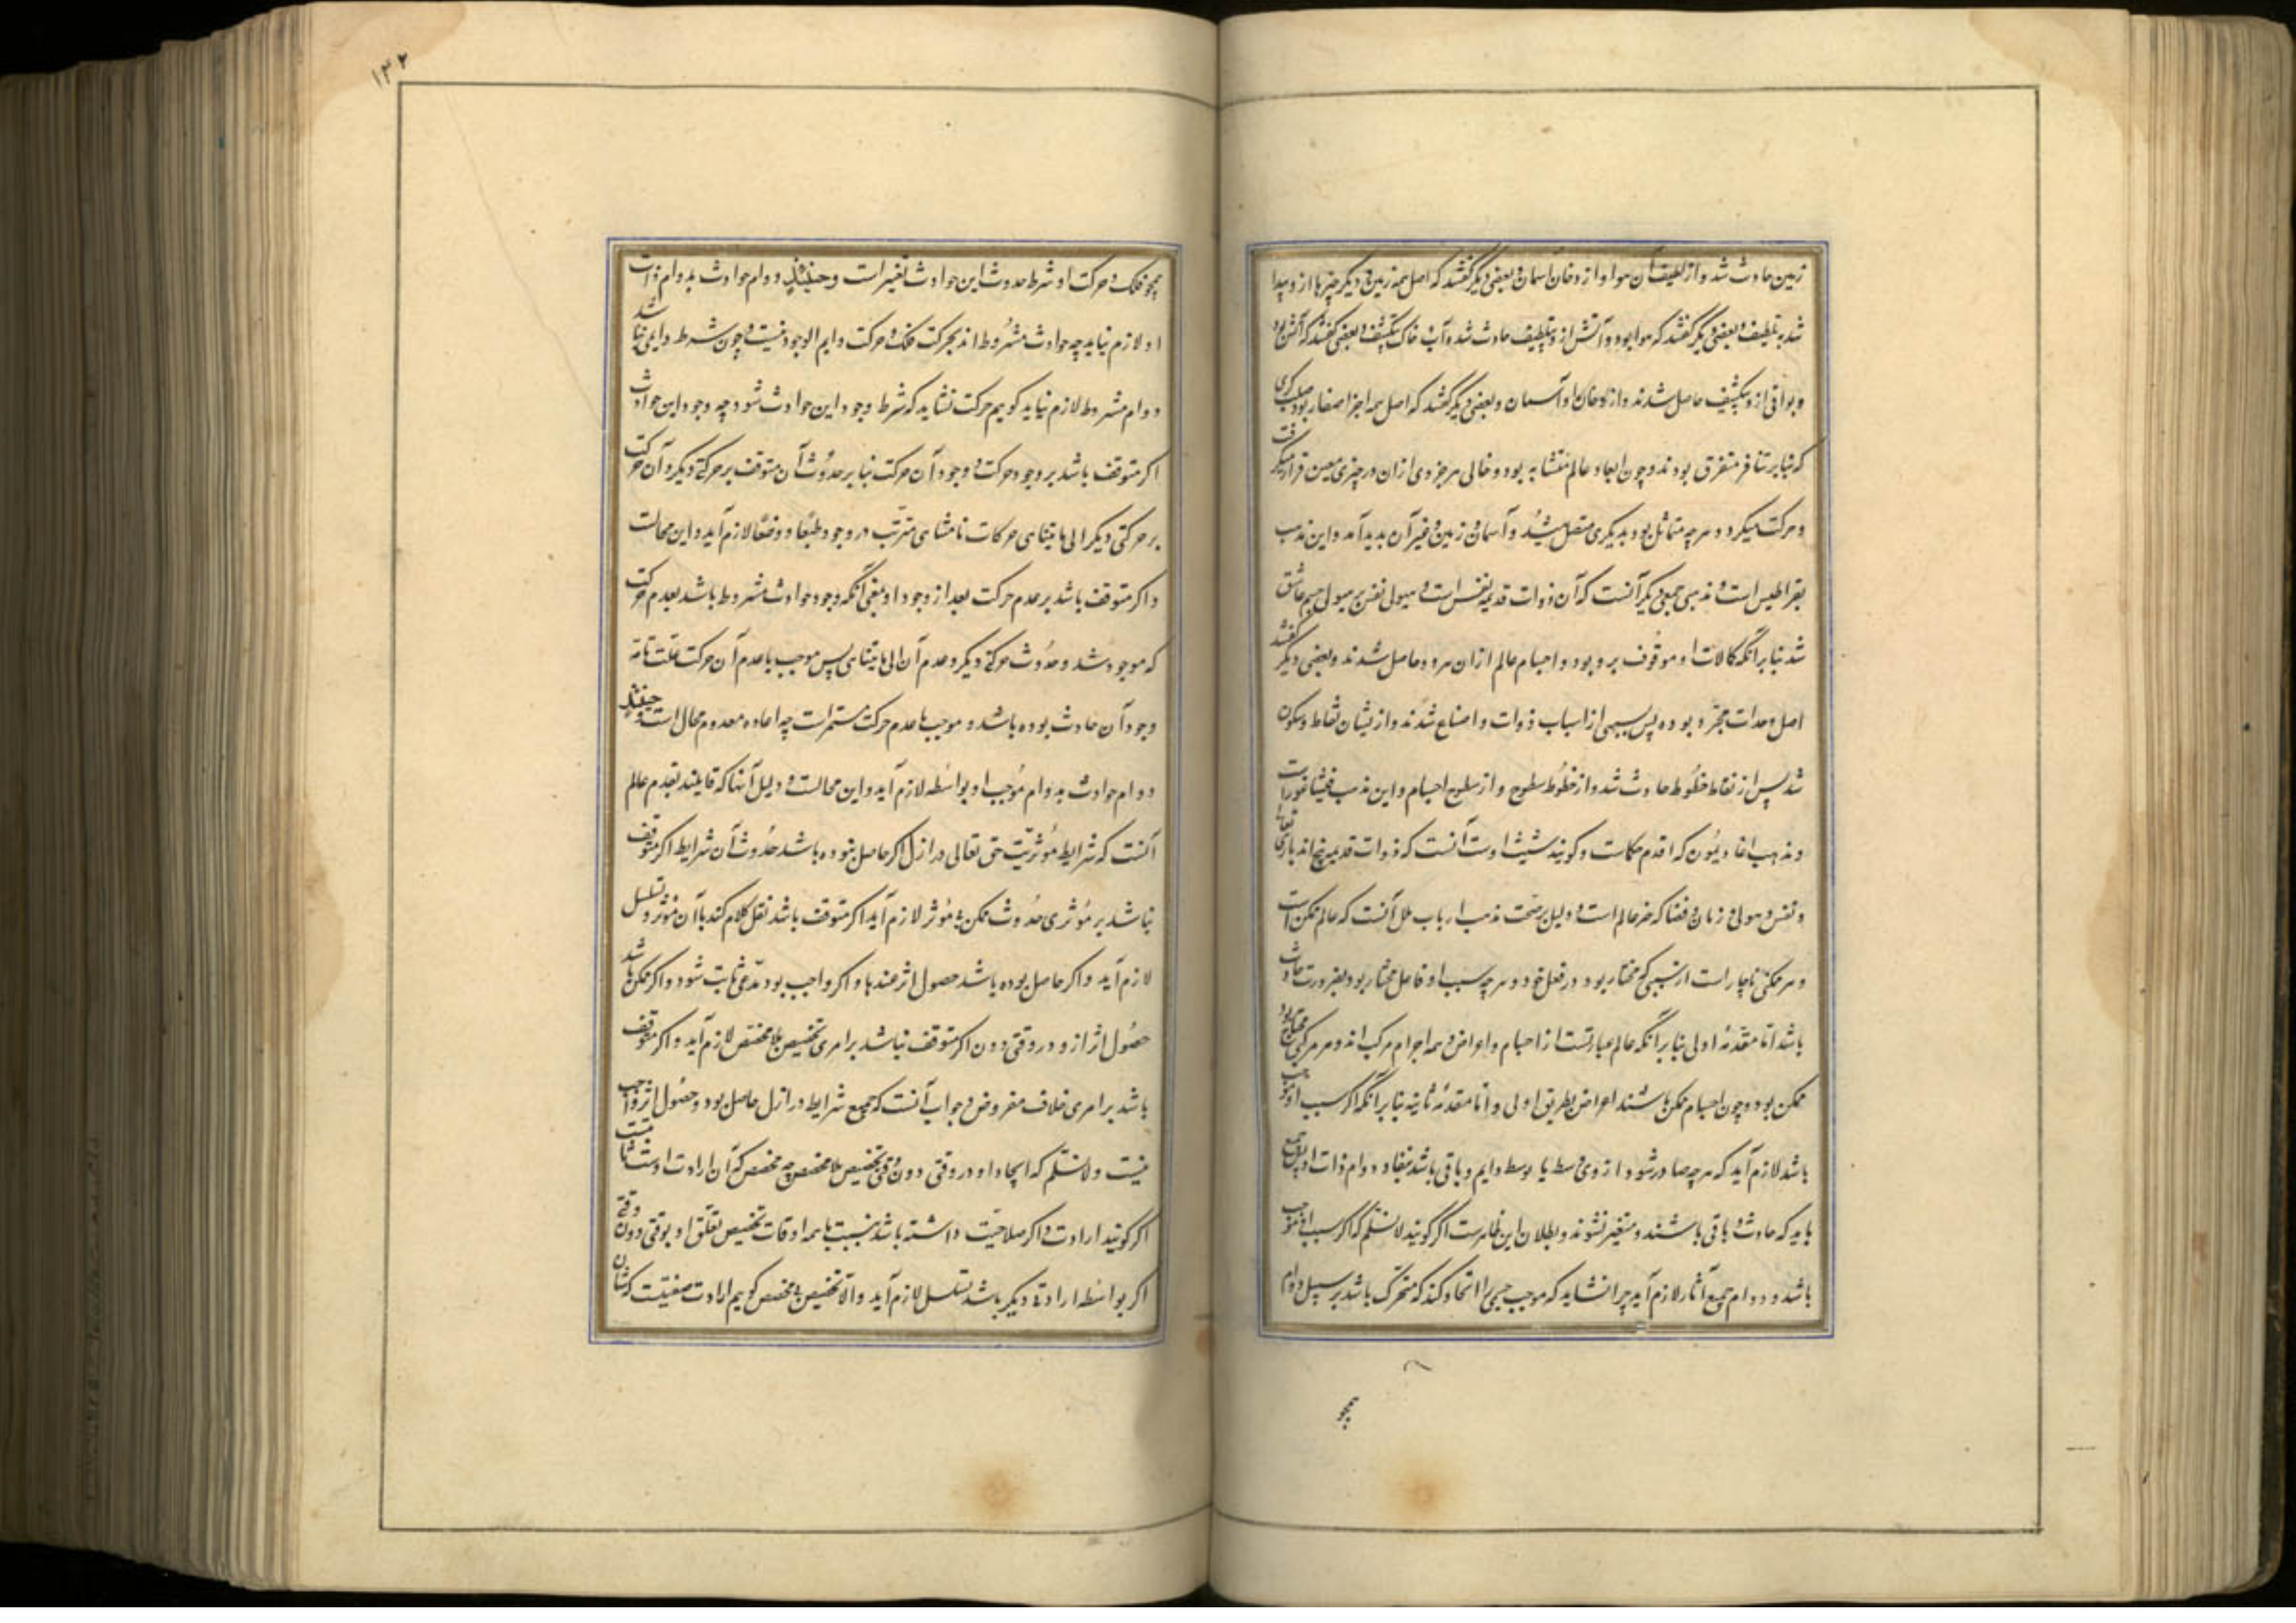 زمین حادث شد و از لطیف آن هوا و از دخان آسمان و بعضی دیگر گفتند که اصل همه زمین و دیگر چیزها از و پیدا
شد بتلطیف و بعضی دیگر گفتند که هوا بود و آتش از و بتلطیف حادث شد و آب و خاک بتکثیف و بعضی گفتند که آتش بود
و بواقی از و بتکثیف حاصل شدند و از دخان او آسمان و بعضی دیگر گفتند که اصل همه اجزا صغار بود صلب کری
که بنابر تنافر متفرق بودند و چون ابعاد عالم متشابه بود و خالی هر جزوی ازان در حیزی معین قرار میگرفت
و حرکت میکرد و هرچه متماثل بود بدیگری متصل میشد و آسمان و زمین و غیر آن بدید آمد و این مذهب
بقراطیس است و مذهبی جمعی دیگر آنست که آن ذوات قدیمه نفس است و هیولی نفس بر هیولی جسم عاشق
شد بنابر آنکه کمالات او موقوف برو بود و اجسام عالم ازان هر دو حاصل شدند و بعضی دیگر گفتند
اصل وحدات مجرد بوده پس بسببی از اسباب ذوات و اصناع شدند و از یشان نقاط و سکون
شد پس از نقاط خطوط حادث شد و از خطوط سطوح و از سطوح اجسام و این مذهب فیثاغورث است
و مذهب اغاذیمون که اقدم حکماست و گویند شیث اوست آنست که ذوات قدیمه پنج اند باری تعالی
و نفس و هیولی و زمان و فضا که خیر عالم است و دلیل بر صحت مذهب ارباب ملل آنست که عالم ممکن است
و هر ممکنی ناچار است از سببی که مختار بود در فعل خود و هرچه سبب او فاعل مختار بود بضرورت حادث
باشد اما مقدمه اولی بنابر آنکه عالم عبارتست از اجسام و اعراض و همه اجرام مرکب اند و هر مرکبی محتاج بود
ممکن بود و چون اجسام ممکن باشند اعراض بطریق اولی و اما مقدمه ثانیه بنابر آنکه اگر سبب او موجب
باشد لازم آید که هرچه صادر شود از وی بوسط یا بی وسط دایم و باقی باشد ببقا و دوام ذات او پس جمیع
باید که حادث و باقی باشند و متغیر نشوند و بطلان این ظاهرست اگر گویند لانسلم که اگر سبب او موجب
باشد و دوام جمیع آثار لازم آید چرا نشاید که موجب جسمی را ایجاد کند که متحرک باشد بر سبیل دوام
همچو
۱۳۲
همچو فلک و حرکت او شرط حدوث این حوادث تغیرات و حینئذٍ دوام حوادث بدوام ذات
او لازم نیاید چه حوادث مشروط اند بحرکت فلک و حرکت دایم الوجود نیست و چون شرط دایمی نباشد
دوام مشروط لازم نیاید گویم حرکت نشاید که شرط وجود این حوادث شود چه وجود این حوادث
اگر متوقف باشد بر وجود حرکت و وجود آن حرکت بنابر حدوث آن متوقف بر حرکتی دیگر و آن حرکت
بر حرکتی دیگر الی ما یتناهی حرکات نامتناهی مترتب در وجود طبعا و وضعا لازم آید و این محالست
و اگر متوقف باشد بر عدم حرکت بعد از وجود او بمعنی آنکه وجود حوادث مشروط باشد بعدم حرکت
که موجود شد و حدوث حرکتی دیگر و عدم آن الی ما یتناهی پس موجب با عدم آن حرکت علت تامه
وجود آن حادث بوده باشد و موجب با عدم حرکت مستمرات چه اعاده معدوم محال است و حینئذٍ
دوام حوادث بدوام موجب او بواسطه لازم آید و این محالست و دلیل آنها که قایلند بقدم عالم
آنست که شرایط مؤثریت حق تعالی در ازل اگر حاصل نبوده باشد حدوث آن شرایط اگر متوقف
نباشد بر مؤثری حدوث ممکن بی مؤثر لازم آید اگر متوقف باشد نقل کلام کند بآن مؤثر و تسلسل
لازم آید و اگر حاصل بوده باشد حصول اثر عندها و اگر واجب بود مدعی ثابت شود و اگر ممکن باشد
حصول اثر از و در وقتی دون اگر متوقف نباشد بر امری تخصیص بلا مخصص لازم آید و اگر متوقف
باشد بر امری خلاف مفروض و جواب آنست که جمیع شرایط در ازل حاصل بود و حصول اثر واجب
نیست و لانسلم که ایجاد او در وقتی دون وقتی تخصیص بلا مخصص چه مخصص که آن ارادت اوست ثابت
اگر گویند ارادت و اگر صلاحیت داشته باشد بنسبت با همه اوقات تخصیص تعلق او بوقتی دون وقتی
اگر بواسطه ارادتی دیگر باشد تسلسل لازم آید و الا تخصیص بی مخصص گویم ارادت صفتیست که شان